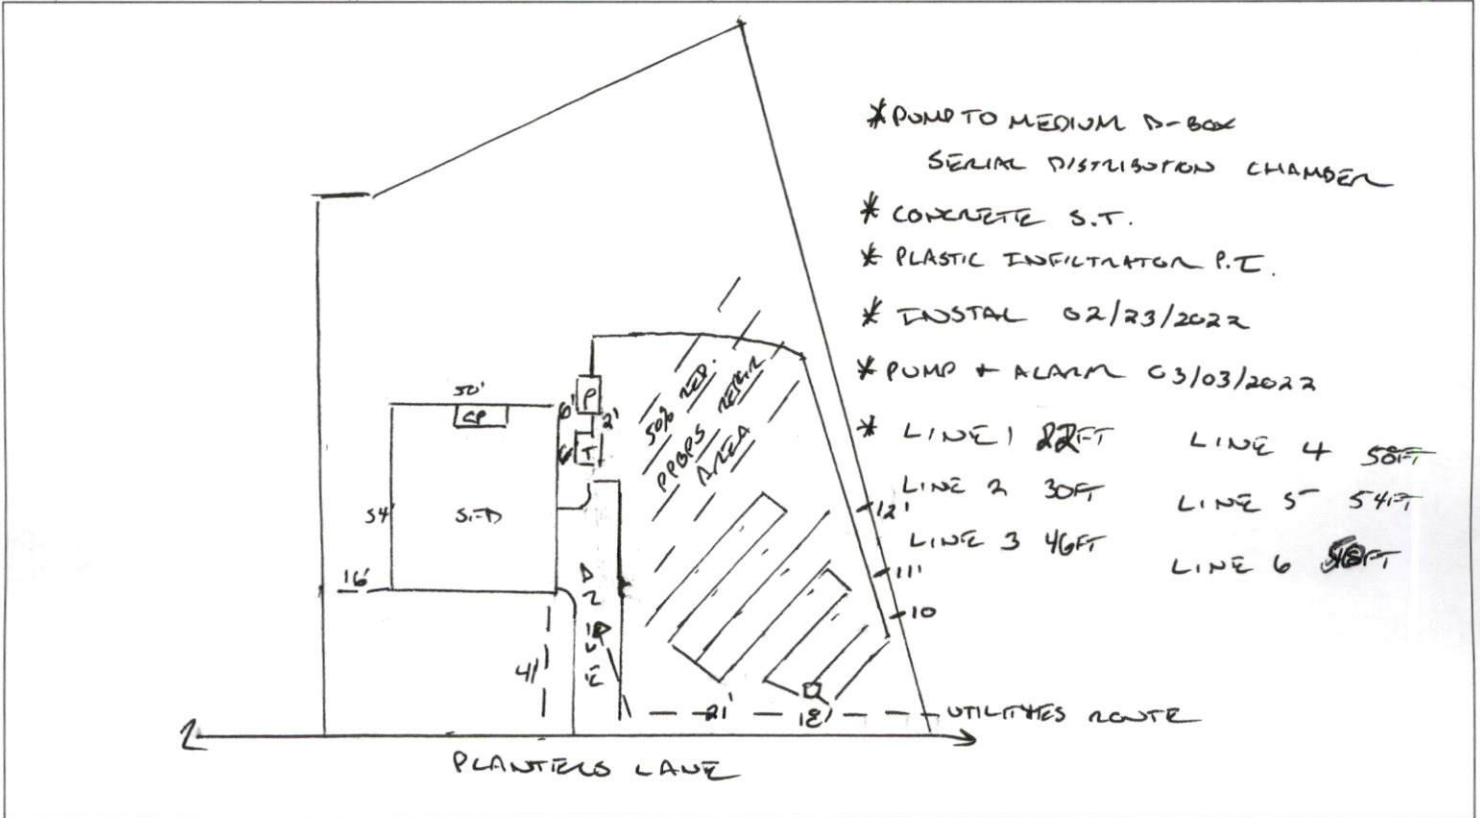 * PUMP TO MEDIUM D-BOX
SERIAL DISTRIBUTION CHAMBER
* CONCRETE S.T.
* PLASTIC INFILTRATOR P.T.
* INSTAL 02/23/2022
* PUMP + ALARM 03/03/2022
* LINE 1 22FT LINE 4 50FT
LINE 2 30FT LINE 5 54FT
LINE 3 46FT LINE 6
50'
CP
6'
P
2'
T
54'
SFD
16'
41'
DRIVE
50% RED.
PPBPS REPAIR
AREA
12'
11'
10
21'
18'
UTILITIES ROUTE
PLANTERS LANE